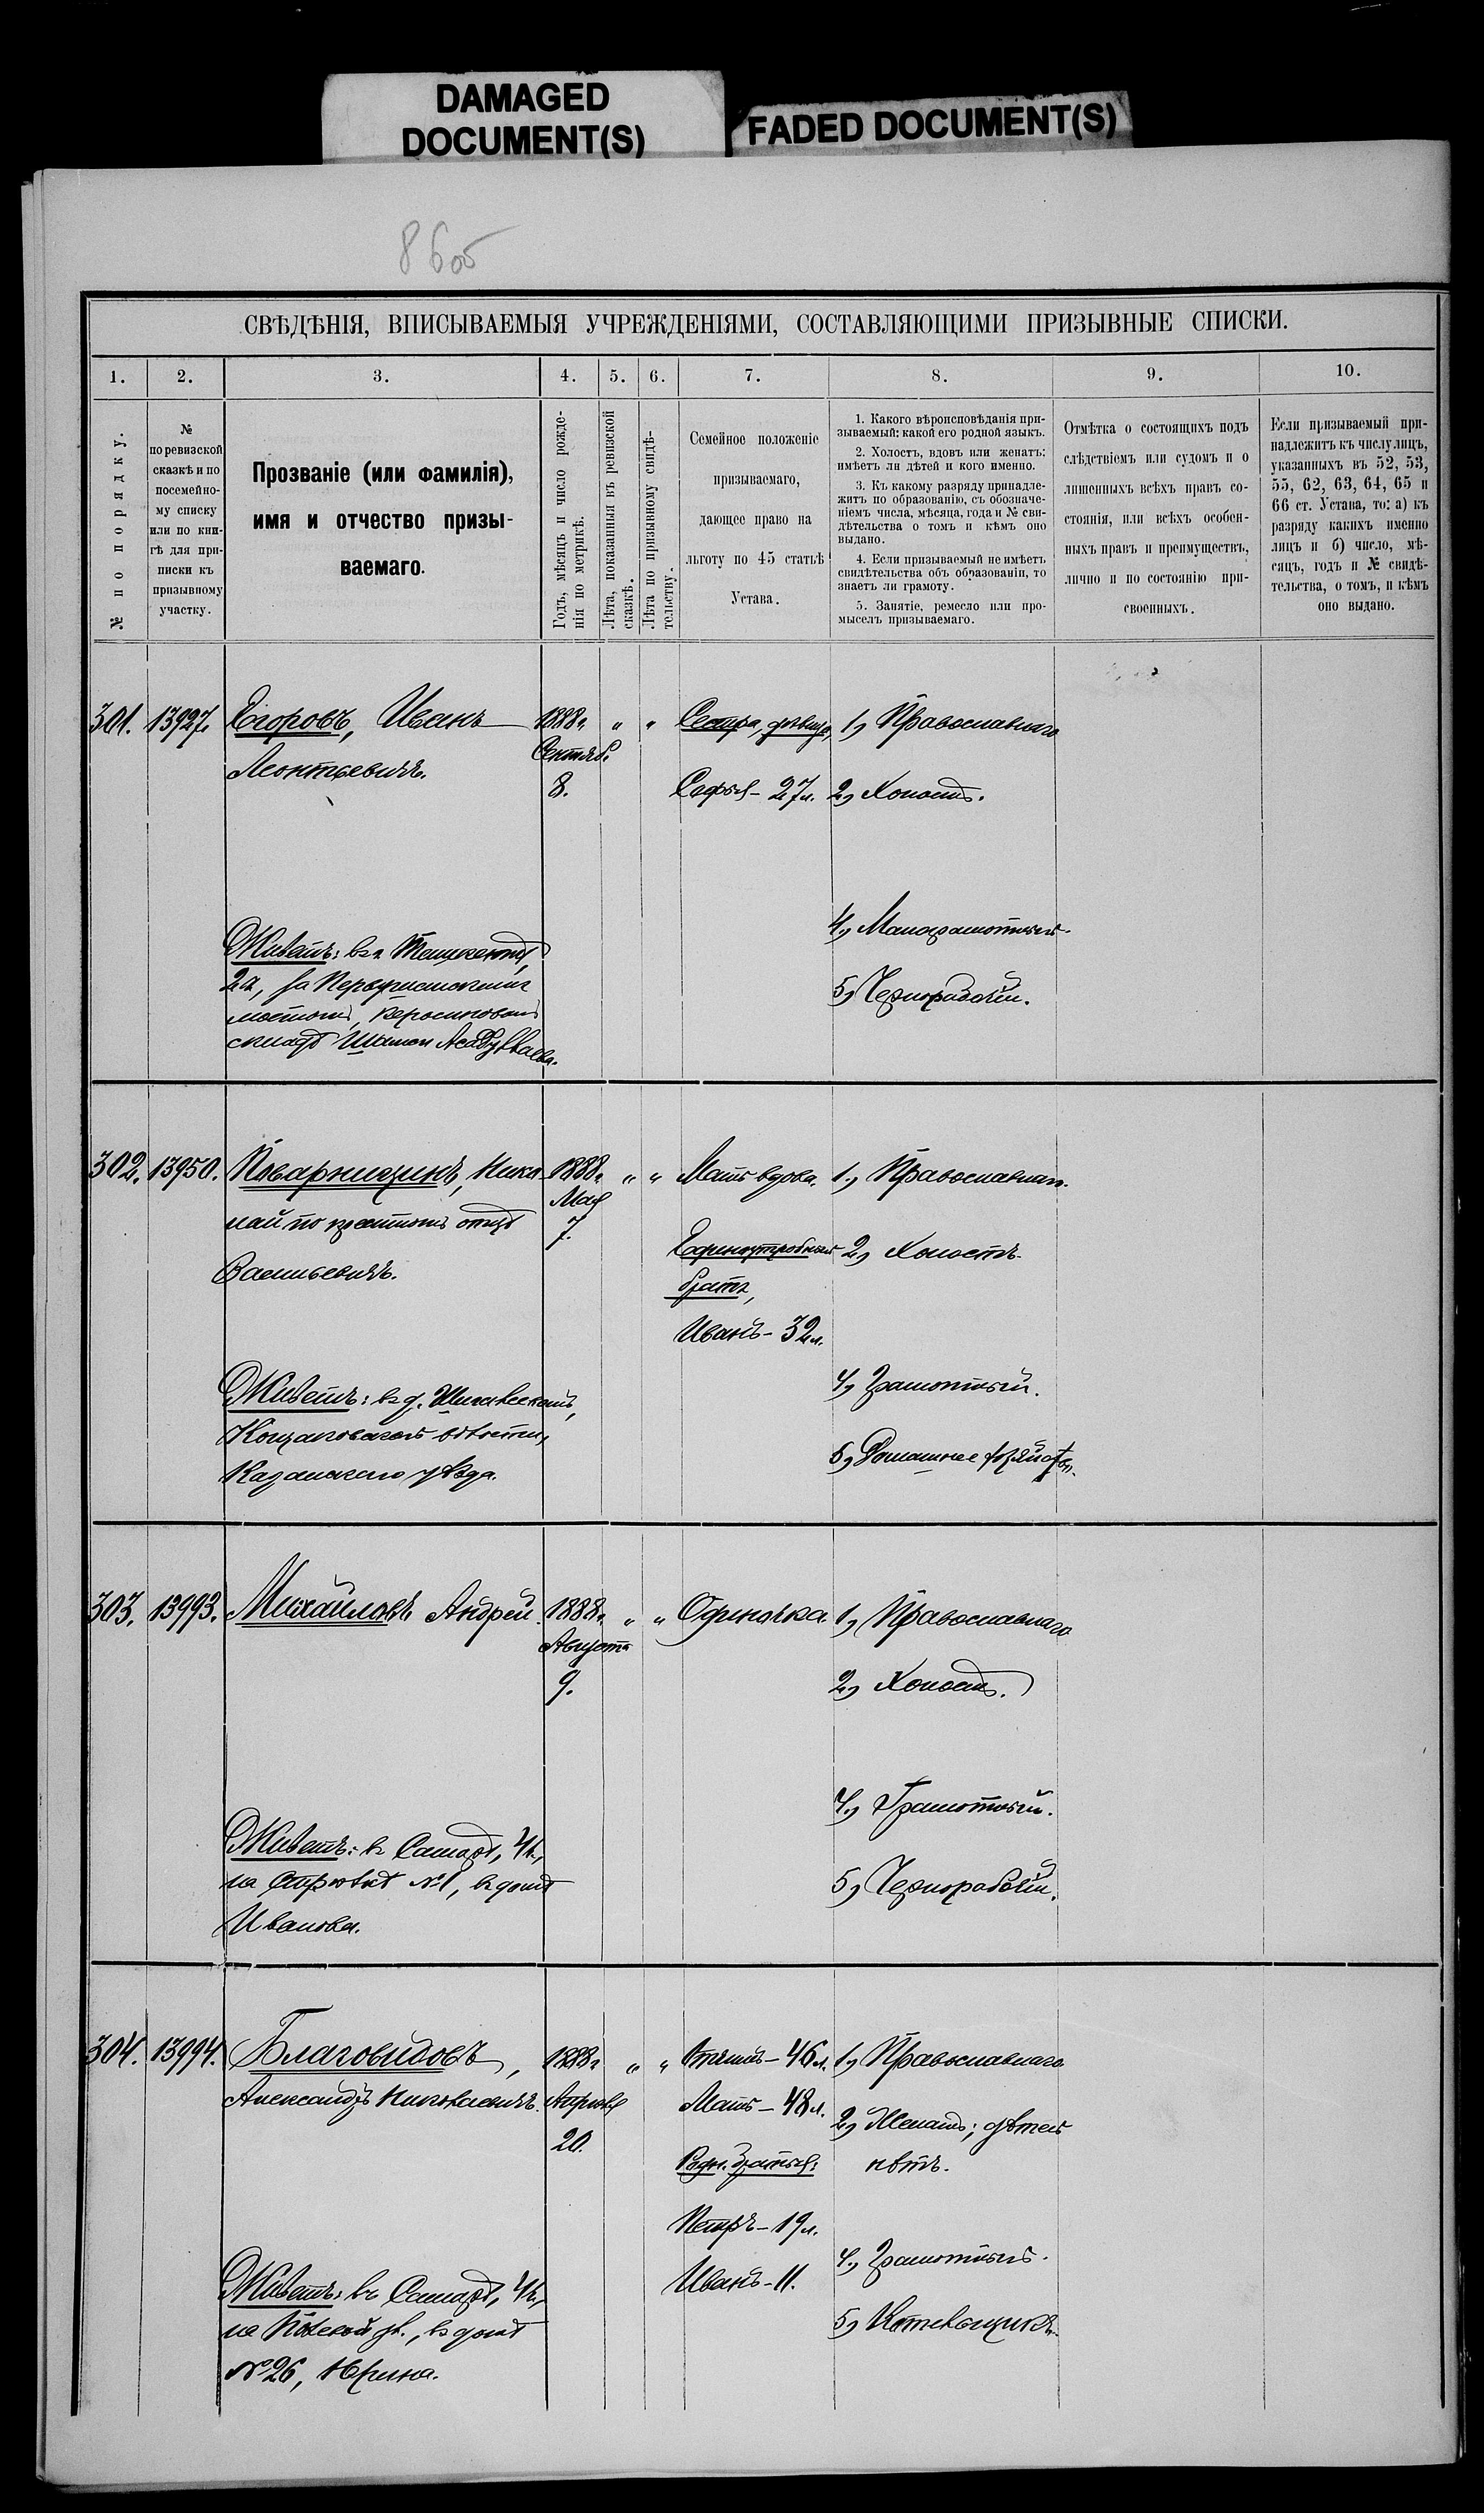 DAMAGED
DOCUMENT(S)
FADED DOCUMENT(S)
86об
СВѢДѢНІЯ, ВПИСЫВАЕМЫЯ УЧРЕЖДЕНІЯМИ, СОСТАВЛЯЮЩИМИ ПРИЗЫВНЫЕ СПИСКИ.
1. 2. 3. 4. 5. 6. 7. 8. 9. 10.
№ по порядку.
№
по ревизской
сказкѣ и по
посемейно-
му списку
или по кни-
гѣ для при-
писки къ
призывному
участку.
Прозваніе (или фамилія),
имя и отчество призы-
ваемаго.
Годъ, мѣсяцъ и число рожде-
нія по метрикѣ.
Лѣта, показанныя въ ревизской
сказкѣ.
Лѣта по призывному свидѣ-
тельству.
Семейное положеніе
призываемаго,
дающее право на
льготу по 45 статьѣ
Устава.
1. Какого вѣроисповѣданія при-
зываемый: какой его родной языкъ.
2. Холостъ, вдовъ или женатъ;
имѣетъ ли дѣтей и кого именно.
3. Къ какому разряду принадле-
житъ по образованію, съ обозначе-
ніемъ числа, мѣсяца, года и № сви-
дѣтельства о томъ и кѣмъ оно
выдано.
4. Если призываемый не имѣетъ
свидѣтельства объ образованіи, то
знаетъ ли грамоту.
5. Занятіе, ремесло или про-
мыселъ призываемаго.
Отмѣтка о состоящихъ подъ
слѣдствіемъ или судомъ и о
лишенныхъ всѣхъ правъ со-
стоянія, или всѣхъ особен-
ныхъ правъ и преимуществъ,
лично и по состоянію при-
своенныхъ.
Если призываемый при-
надлежитъ къ числу лицъ,
указанныхъ въ 52, 53,
55, 62, 63, 64, 65 и
66 ст. Устава, то: а) къ
разряду какихъ именно
лицъ и б) число, мѣ-
сяцъ, годъ и № свидѣ-
тельства, о томъ, и кѣмъ
оно выдано.
301. 13927. Егоровъ, Иванъ
Леонтьевичъ.
1888г. " "
Сентяб.
8.
Сестра, дѣвица,
Софья - 27л.
1, Православнаго
2, Холостъ.
4, Малограмотный.
5, Чернорабочій.
Живетъ: въ г. Ташкентѣ,
2а, за
мостомъ, керосиновый
складъ
302. 13950. Поварницинъ, Нико
лай по крестному отцу
Васильевичъ.
1888г. " "
Мая
7.
Мать вдова.
Единоутробный
братъ,
Иванъ - 32л.
1, Православнаго.
2, Холостъ.
4, Грамотный.
5, Домашнее хозяйство.
Живетъ: въ д.
волости,
Казанскаго уѣзда.
303. 13993. Михайловъ Андрей.
1888г. " "
Августа
9.
Одиночка.
1, Православнаго
2, Холостъ.
4, Грамотный.
5, Чернорабочій.
Живетъ: въ Самарѣ, 4ч.,
на №1, въ домѣ
Иванова.
304. 13994. Благовидовъ,
Александръ Николаевичъ.
1888г. " "
Апрѣля
20.
Отчимъ - 46л.
Мать - 48л.
Родн. братья:
Петръ - 19л.
Иванъ - 11.
1, Православнаго
2, Женатъ; дѣтей
нѣтъ.
4, Грамотный.
5, Котельщикъ.
Живетъ: въ Самарѣ, 4ч.,
на Полевой ул., въ домѣ
№26, Юрина.